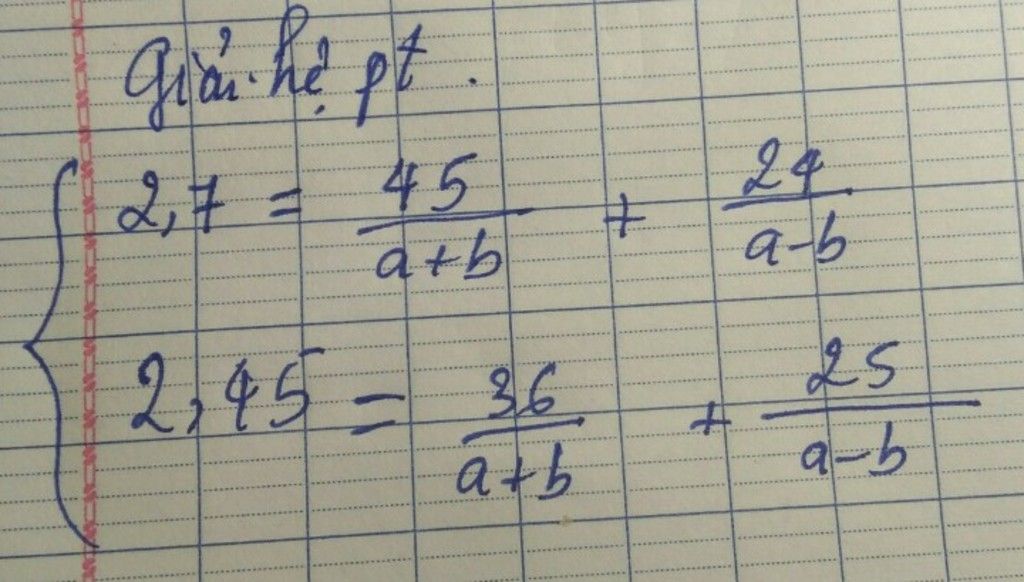 Giải hệ pt.
2,7 = 45/(a+b) + 24/(a-b)
2,45 = 36/(a+b) + 25/(a-b)